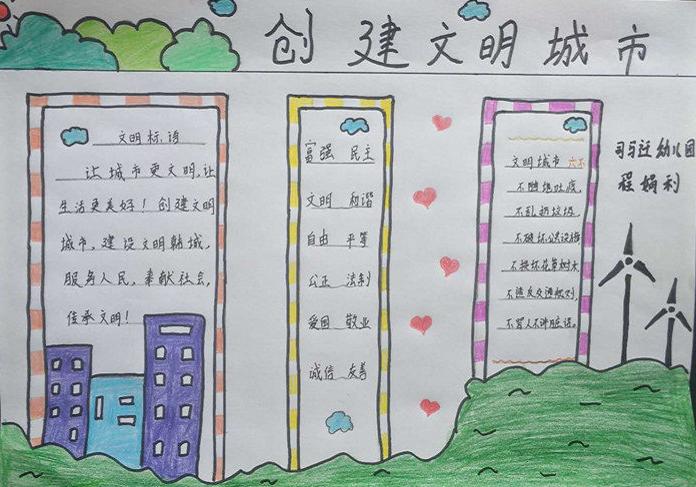 创建文明城市
文明标语
让城市更文明,让
生活更美好!创建文明
城市,建设文明韩城,
服务人民,奉献社会,
传承文明!
富强 民主
文明 和谐
自由 平等
公正 法制
爱国 敬业
诚信 友善
文明城市 六不
不随地吐痰,
不乱扔垃圾,
不破坏公共设施
不损坏花草树木
不违反交通规则,
不骂人不讲脏话。
司马迁幼儿园
程娟利